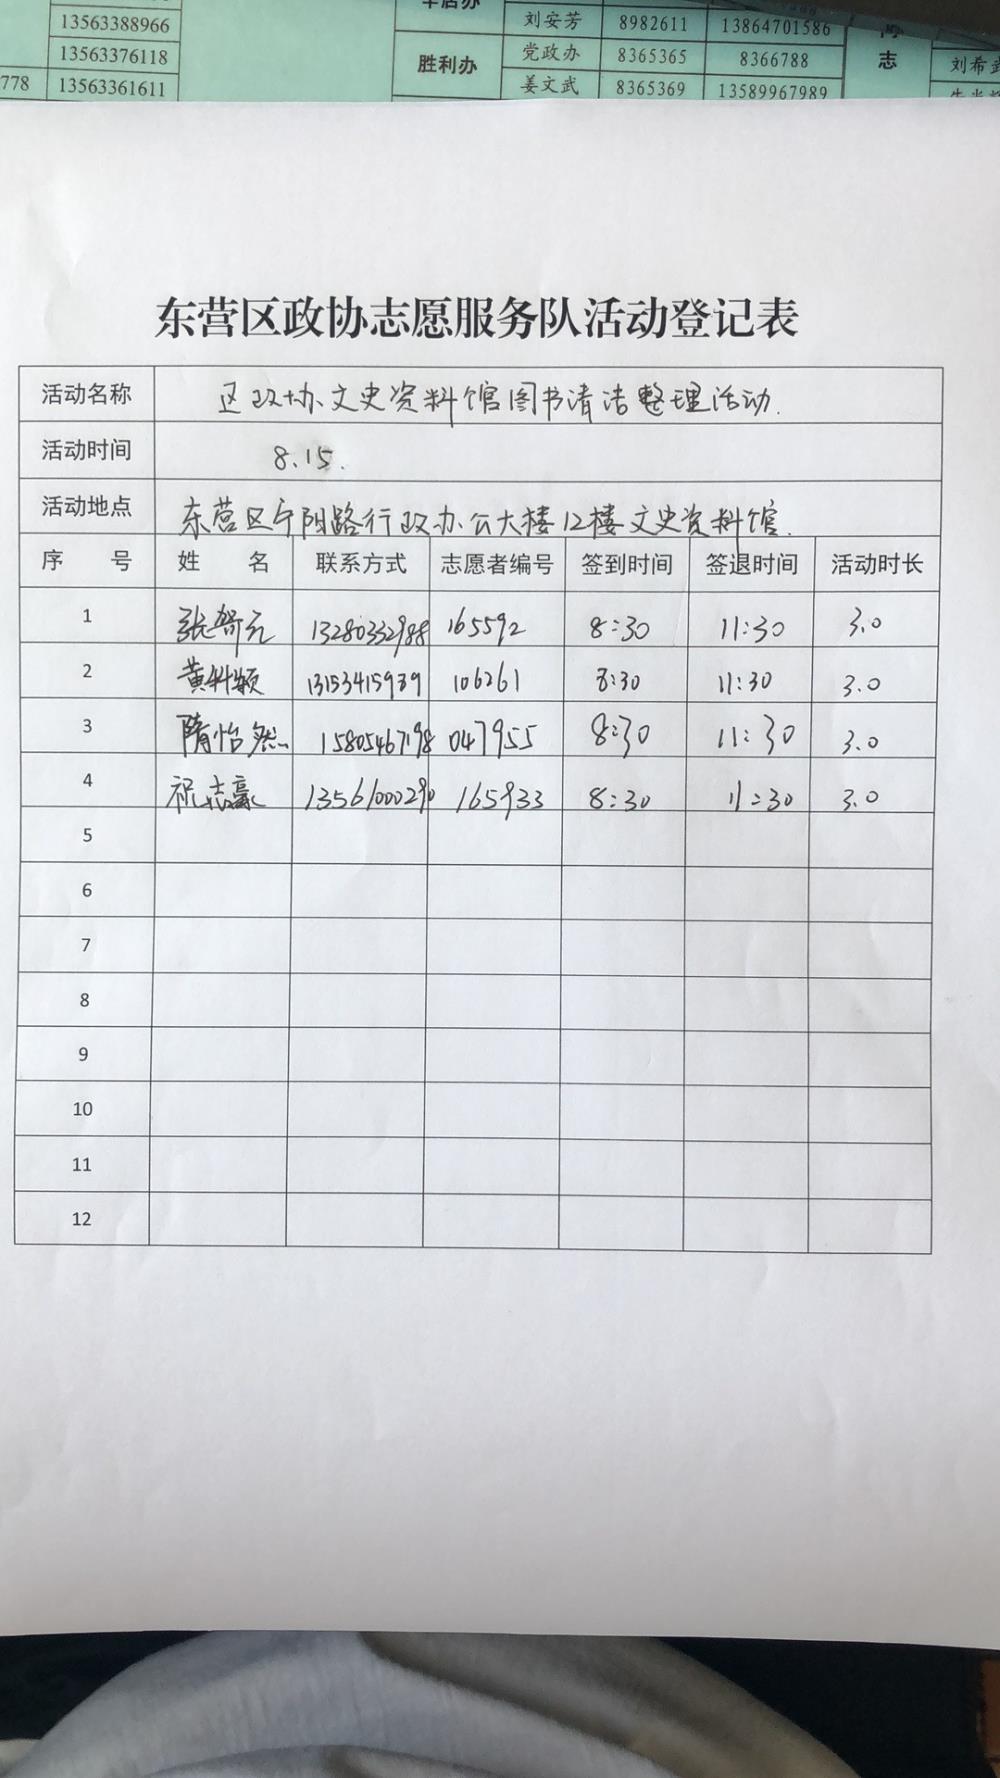 13563388966
刘安芳 8982611 13864701586
13563376118
胜利办 党政办 8365365 8366788
志
778 13563361611
姜文武 8365369 13589967989
东营区政协志愿服务队活动登记表
活动名称 区政协文史资料馆图书清洁整理活动.
活动时间 8.15.
活动地点 东营区宁阳路行政办公大楼12楼文史资料馆.
序 号 姓 名 联系方式 志愿者编号 签到时间 签退时间 活动时长
1 张智元 13280332988 165592 8:30 11:30 3.0
2 黄科颖 13153415939 106261 8:30 11:30 3.0
3 隋怡然 15805467198 047955 8:30 11:30 3.0
4 祝志豪 13561000290 165933 8:30 11:30 3.0
5
6
7
8
9
10
11
12